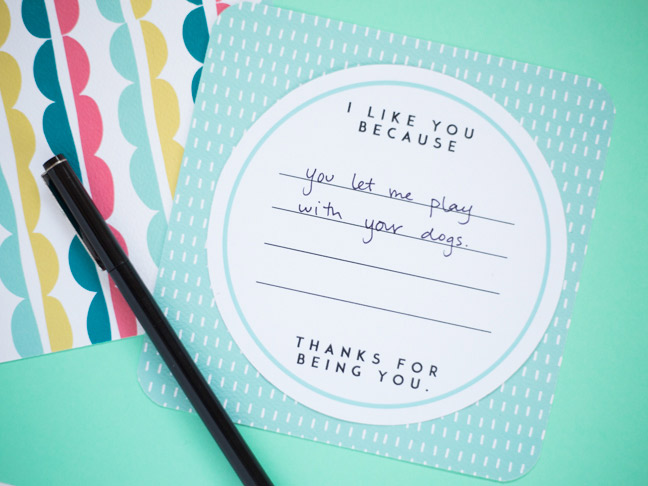 I LIKE YOU
BECAUSE
you let me play
with your dogs.
THANKS FOR
BEING YOU.